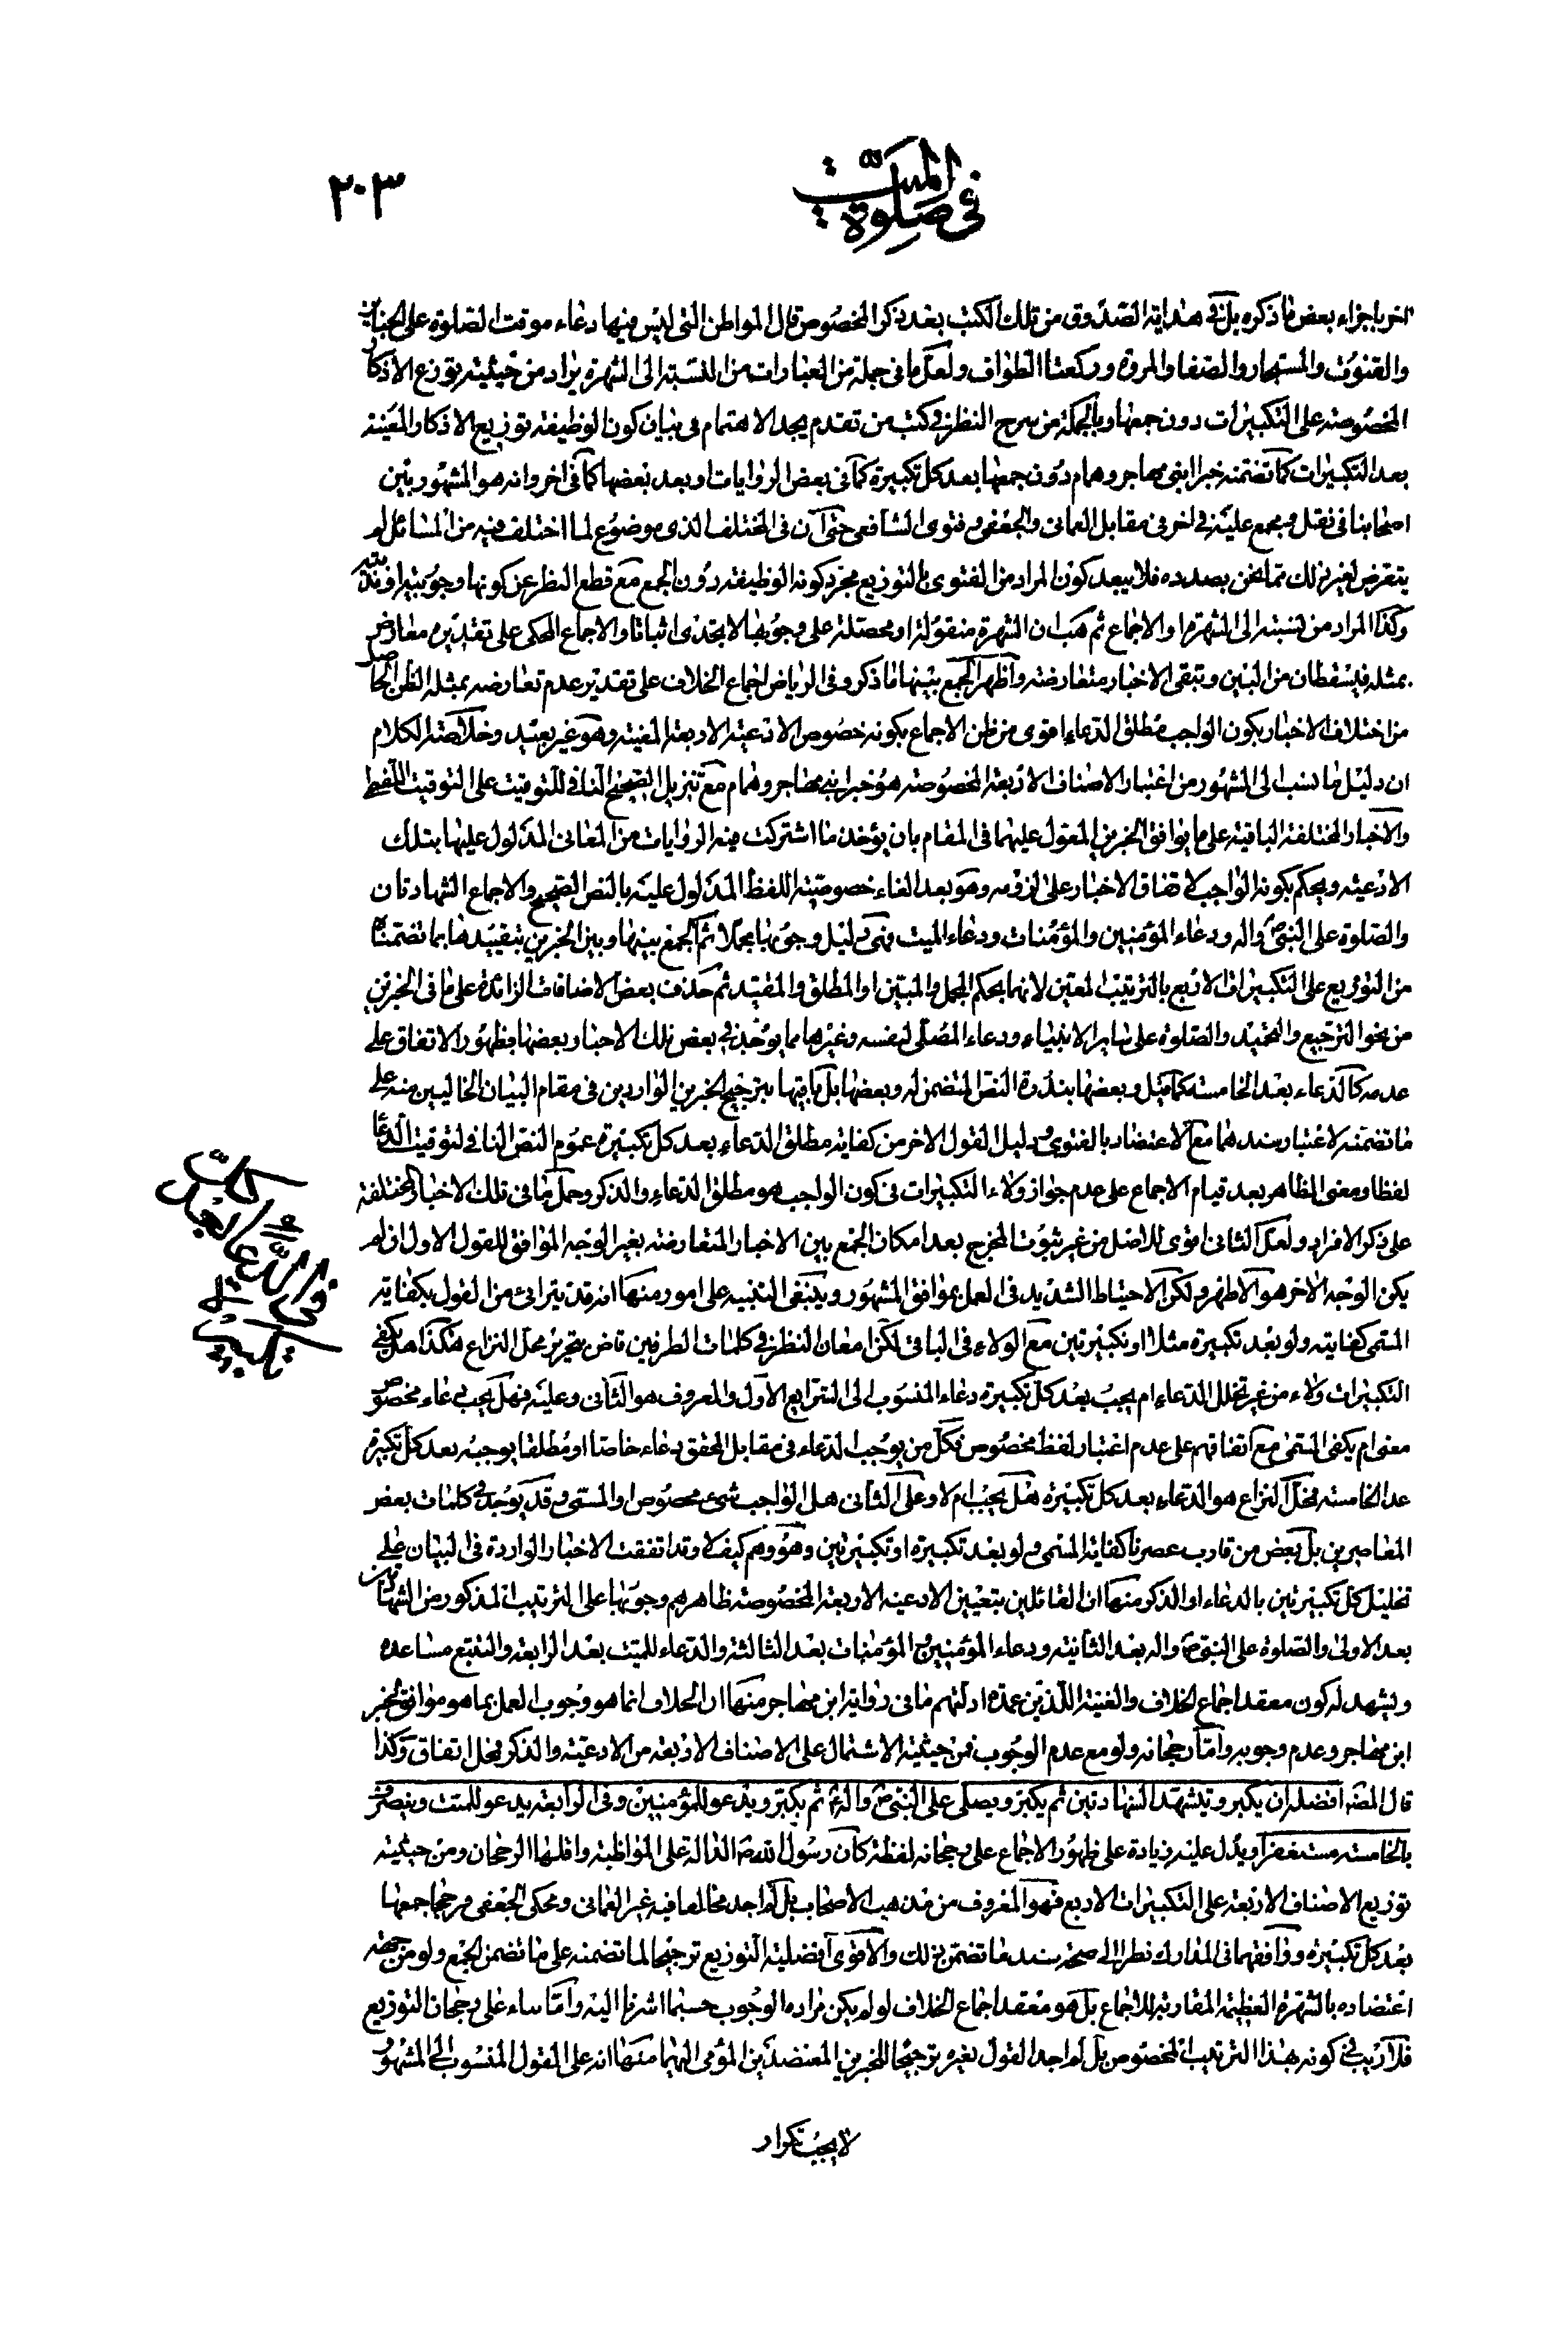 في صلوة الميت
٢٠٣
اخر باجزاء بعض ما ذكره بل في هداية الصدوق من تلك الكتب بعد ذكر المخصوص قال المواطن التي ليس فيها دعاء موقت الصلوة على الجنازة
والقنوت والمستجار والصفا والمروة وركعتا الطواف ولعل ما في جملة من العبارات من النسبة الى الشهرة يراد من حيثية توزع الاذكار
المخصوصة على التكبيرات دون جمعها وبالجملة من سرح النظر في كتب من تقدم يجد الاهتمام في بيان كون الوظيفة توزيع الاذكار المعينة
بعد التكبيرات كما تضمنه خبرا ابني مهاجر وهمام دون جمعها بعد كل تكبيرة كما في بعض الروايات او بعد بعضها كما في اخر وانه هو المشهور بين
اصحابنا في نقل ومجمع عليه في اخر في مقابل العماني والجعفي وفتوى الشافعي حتى ان في المختلف الذي موضوع لما اختلف فيه من المسائل لم
يتعرض لغير ذلك مما نحن بصدده فلا يبعد كون المراد من الفتوى بالتوزيع مجرد كونه الوظيفة دون الجمع مع قطع النظر عن كونها وجوبية او ندبية
وكذا المراد من نسبته الى الشهرة او الاجماع ثم هب ان الشهرة منقولة او محصلة على وجوبها لا يجدي اثباتا والاجماع المحكى على تقديره معارض
بمثله فيسقطان من البين وتبقى الاخبار متعارضة واظهر الجمع بينها ما ذكر وفي الرياض اجماع الخلاف على تقدير عدم تعارضه بمثله الظن الحاصل
من اختلاف الاخبار بكون الواجب مطلق الدعاء اقوى من ظن الاجماع بكونه خصوص الادعية الاربعة المعينة وهو غير بعيد وخلاصة الكلام
ان دليل ما نسب الى المشهور من اعتبار الاصناف الاربعة المخصوصة هو خبرا ابني مهاجر وهمام مع تنزيل الصحيح النافي للتوقيت على التوقيت اللفظي
والاخبار المختلفة الباقية على ما يوافق الخبرين المعول عليهما في المقام بان يؤخذ ما اشتركت فيه الروايات من المعاني المدلول عليها بتلك
الادعية ويحكم بكونه الواجب لاتفاق الاخبار على لزومه وهو بعد الغاء خصوصية اللفظ المدلول عليه بالنص الصحيح والاجماع الشهادتان
والصلوة على النبي واله ودعاء المؤمنين والمؤمنات ودعاء الميت فهي دليل وجوبها مجملا ثم الجمع بينها وبين الخبرين بتقييدها بما تضمناه
من التوزيع على التكبيرات الاربع بالترتيب المعين لانهما بحكم المجمل والمبين او المطلق والمقيد ثم حذف بعض الاضافات الزائدة على ما في الخبرين
من نحو الترجيع والتحميد والصلوة على سائر الانبياء ودعاء المصلى لنفسه وغيرها مما يوخذ في بعض تلك الاخبار وبعضها بظهور الاتفاق على
عدمه كالدعاء بعد الخامسة كما قيل وبعضها بندرة النص المتضمن له وبعضها بل باقيها بترجيح الخبرين الواردين في مقام البيان الخاليين منه على
ما تضمنه لاعتبار سندهما مع الاعتضاد بالفتوى ودليل القول الاخر من كفاية مطلق الدعاء بعد كل تكبيرة عموم النص النافي لتوقيت الدعاء
لفظا ومعنى الظاهر بعد قيام الاجماع على عدم جواز ولاء التكبيرات في كون الواجب هو مطلق الدعاء والذكر وحمل ما في تلك الاخبار المختلفة
على ذكر الافراد ولعل الثاني اقوى للاصل من غير ثبوت المخرج بعد امكان الجمع بين الاخبار المتعارضة بغير الوجه الموافق للقول الاول ان لم
يكن الوجه الاخر هو الاظهر ولكن الاحتياط الشديد في العمل بموافق المشهور وينبغي التنبيه على امور منها انه قد يترائى من القول بكفاية
المسمى كفايته ولو بعد تكبيرة مثلا او تكبيرتين مع الولاء في الباقي لكن امعان النظر في كلمات الطرفين قاض بتحرير محل النزاع هكذا هل يكفى
التكبيرات ولاء من غير تخلل الدعاء ام يجب بعد كل تكبيرة دعاء المنسوب الى الشرايع الاول والمعروف هو الثاني وعليه فهل يجب دعاء مخصوص
معنى ام يكفى المسمى مع اتفاقهم على عدم اعتبار لفظ مخصوص فكل من يوجب الدعاء في مقابل المحقق دعاء خاصا او مطلقا يوجبه بعد كل تكبيرة
عدا الخامسة فمحل النزاع هو الدعاء بعد كل تكبيرة هل يجب ام لا وعلى الثاني هل الواجب شيء مخصوص او المسمى وقد يوجد في كلمات بعض
المعاصرين بل بعض من قارب عصرنا كفاية المسمى ولو بعد تكبيرة او تكبيرتين وهو وهم كيف لا وقد اتفقت الاخبار الواردة في البيان على
تخليل كل تكبيرتين بالدعاء او الذكر منها ان القائلين بتعيين الادعية الاربعة المخصوصة ظاهرهم وجوبها على الترتيب المذكور من الشهادتين
بعد الاولى والصلوة على النبي ص واله بعد الثانية ودعاء المؤمنين والمؤمنات بعد الثالثة والدعاء للميت بعد الرابعة والتتبع مساعده
ويشهد له كون معقد اجماع الخلاف والغنية اللذين عمدة ادلتهم ما في رواية ابن مهاجر منها ان الخلاف انما هو وجوب العمل بما هو موافق لخبر
ابن مهاجر وعدم وجوبه واما رجحانه ولو مع عدم الوجوب فمن حيثية الاشتمال على الاصناف الاربعة من الادعية والذكر فمحل اتفاق وكذا
قال المصه افضله ان يكبر ويتشهد الشهادتين ثم يكبر ويصلى على النبي ص واله ثم يكبر ويدعو للمؤمنين وفي الرابعة يدعو للميت وينصرف
بالخامسة مستغفرا ويدل عليه زيادة على ظهور الاجماع على رجحانه لفظة كان رسول الله ص الدالة على المواظبة واقلها الرجحان ومن حيثية
توزيع الاصناف الاربعة على التكبيرات الاربع فهو المعروف من مذهب الاصحاب بل لم اجد مخالفا فيه غير العماني ومحكى الجعفي فرجحا جمعها
بعد كل تكبيرة ووافقهما في المدارك نظرا الى صحة سند ما تضمن ذلك والاقوى افضلية التوزيع ترجيحا لما تضمنه على ما تضمن الجمع ولو من جهة
اعتضاده بالشهرة العظيمة المقاربة للاجماع بل هو معقد اجماع الخلاف لو لم يكن مراده الوجوب حسبما اشرنا اليه واما بناء على رجحان التوزيع
فلا ريب في كونه بهذا الترتيب المخصوص بل لم اجد القول بغيره ترجيحا للخبرين المعتضدين المؤمى اليهما منها انه على القول المنسوب الى المشهور
لا يجب تكرار
في الدعاء بعد كل
تكبيرة